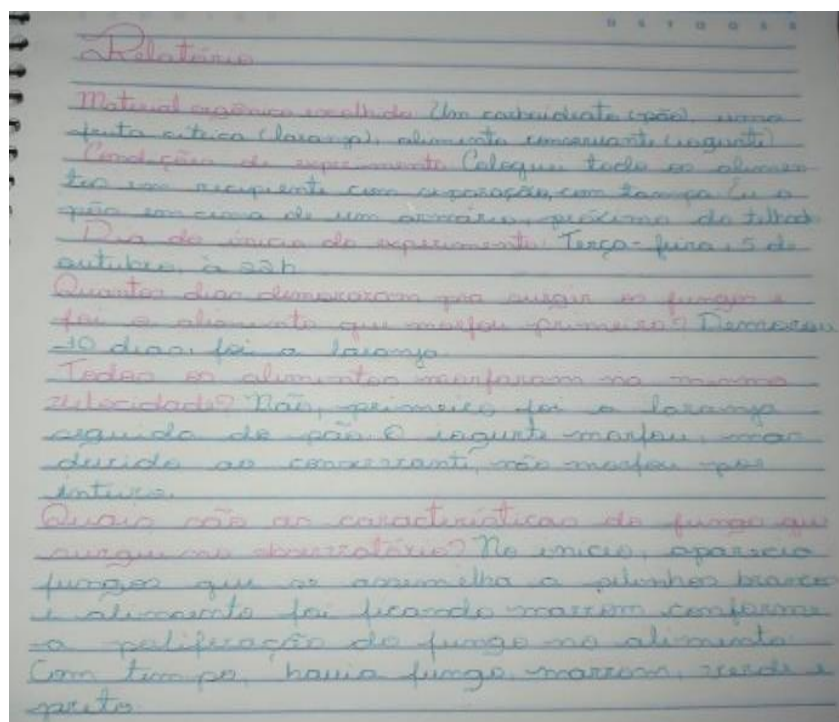 Relatório
Material orgânico escolhido: Um carboidrato (pão), uma
fruta cítrica (laranja), alimento conservante (iogurte)
Condições de experimento: Coloquei todo os alimen
tos em recipiente com separação, com tampa. Eu o
pão em cima de um armário, próximo do telhado
Dia do início do experimento: Terça-feira, 5 de
outubro, à 22h
Quantos dias demoraram pra surgir os fungos e
foi o alimento que mofou primeiro? Demorou
10 dias, foi a laranja.
Todos os alimentos mofaram na mesma
velocidade? Não, primeiro foi a laranja
seguida do pão. O iogurte mofou, mas
devido ao conservante, não mofou por
inteiro.
Quais são as características do fungo que
surgiu no observatório? No início, aparecia
fungos que se assemelha a pelinhos brancos
e alimento foi ficando marrom conforme
a poliferação do fungo no alimento.
Com tempo, havia fungo marrom, verde e
preto